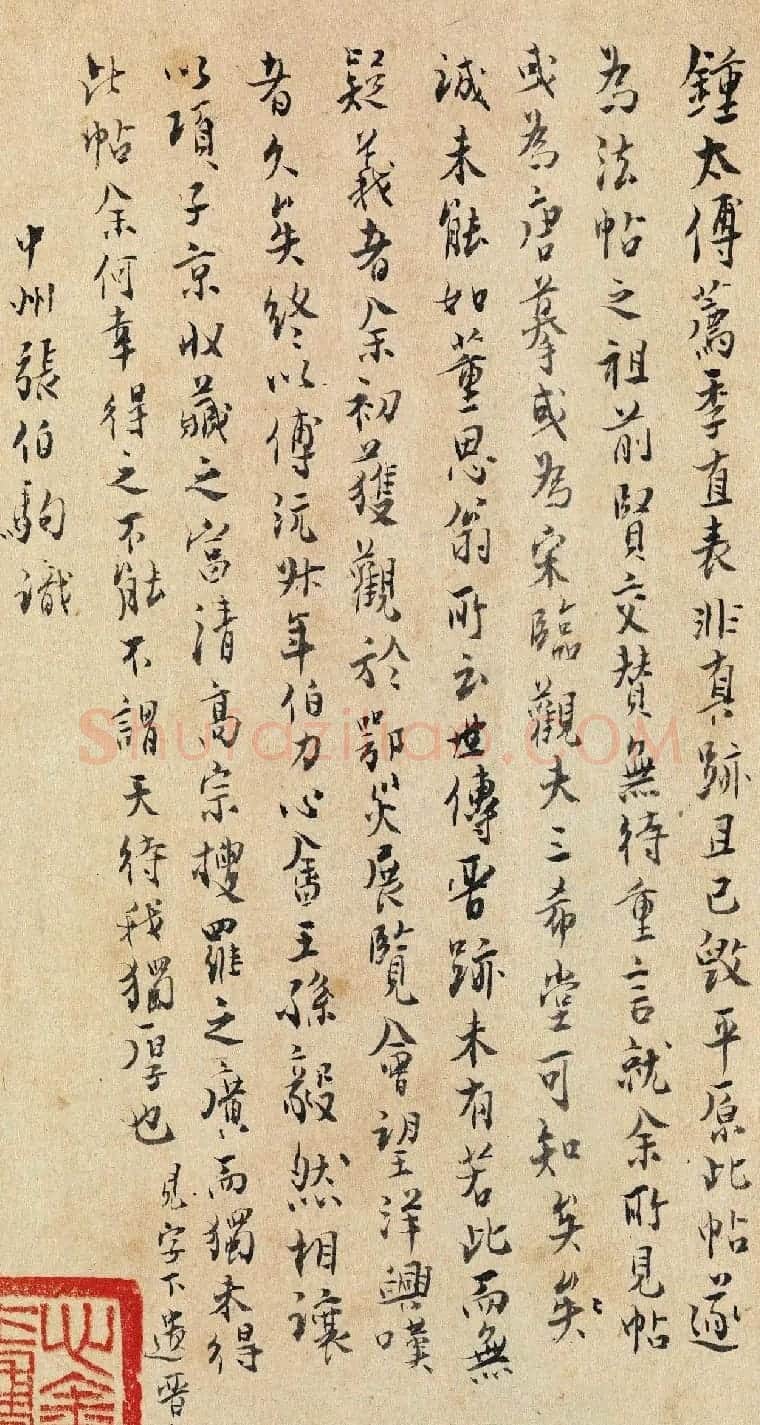 鍾太傅薦季直表非真跡且已毀平原此帖遂
為法帖之祖前賢交贊無待重言就余所見帖
或為唐摹或為宋臨觀夫三希堂可知矣矣
誠未能如董思翁所云世傳晉跡未有若此而無
疑義者余初獲觀於鄂災展覽會望洋興嘆
者久矣終以傅沅叔年伯力心畬王孫毅然相讓
以項子京收藏之富清高宗搜羅之廣而獨未得
此帖余何幸得之不能不謂天待我獨厚也
見字下遺晉
中州張伯駒識
Shufaziliao.COM